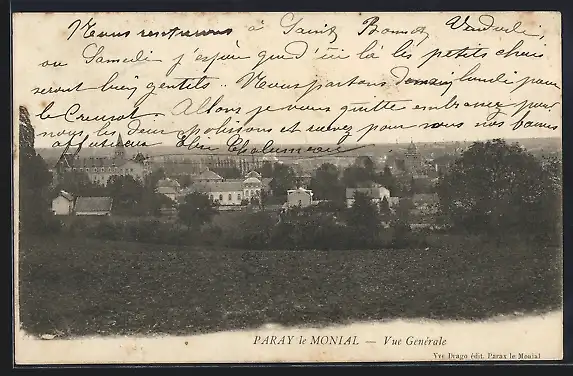 Nous rentrerons à Saint Bonnet Vendredi
ou Samedi j'espère que d'ici là les petits chéris
seront bien gentils. Nous partons demain lundi pour
le Creusot. Allons je vous quitte embrassez pour
nous les deux polissons et recevez pour vous nos bonnes
affections
PARAY le MONIAL — Vue Générale
Vve Drago édit. Paray le Monial